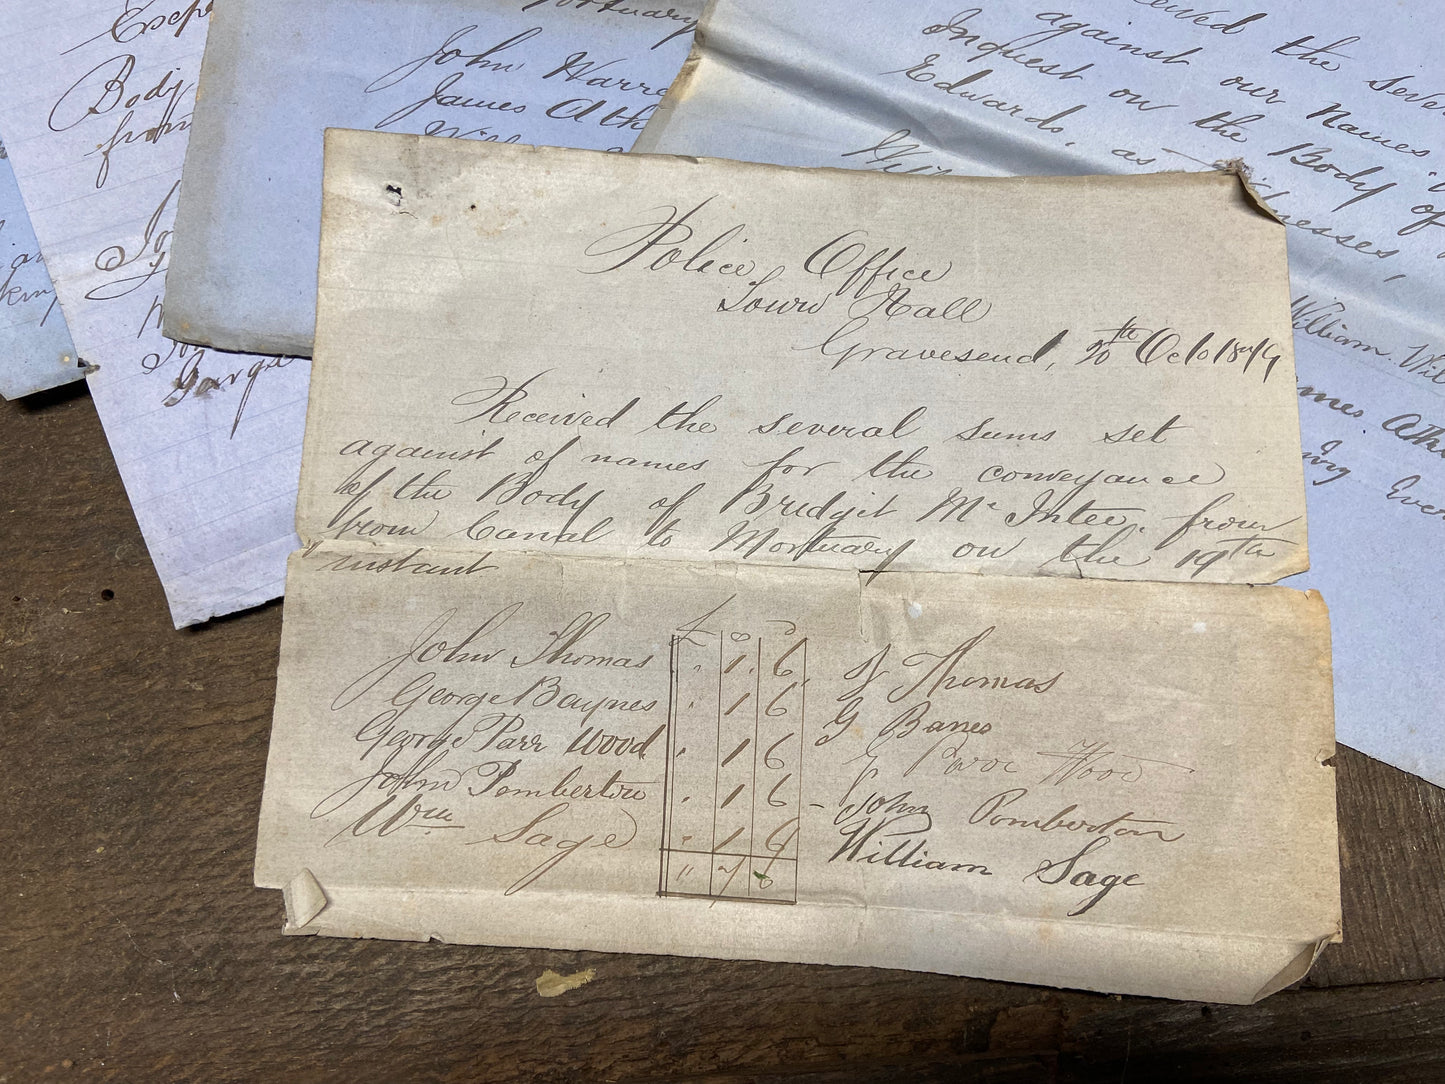 Body
from
George
John Harr
James Atk
ceived the seve
against our Names
Inquest on the Body of
Edwards, as Witnesses,
William Wil
mes Atk
Police Office
Town Hall
Gravesend, 20th Octo 1879
Received the several sums set
against of names for the conveyance
of the Body of Bridgit Mc Intee, from
from Canal to Mortuary on the 19th
instant
£ s d
John Thomas " 1. 6, J Thomas
George Baynes " 1 6 G Banes
George Parr Wood " 1 6 G Parr Wood
John Pemberton " 1 6 - John Pomberton
Wm Sage " 1 6 William Sage
" 7 6